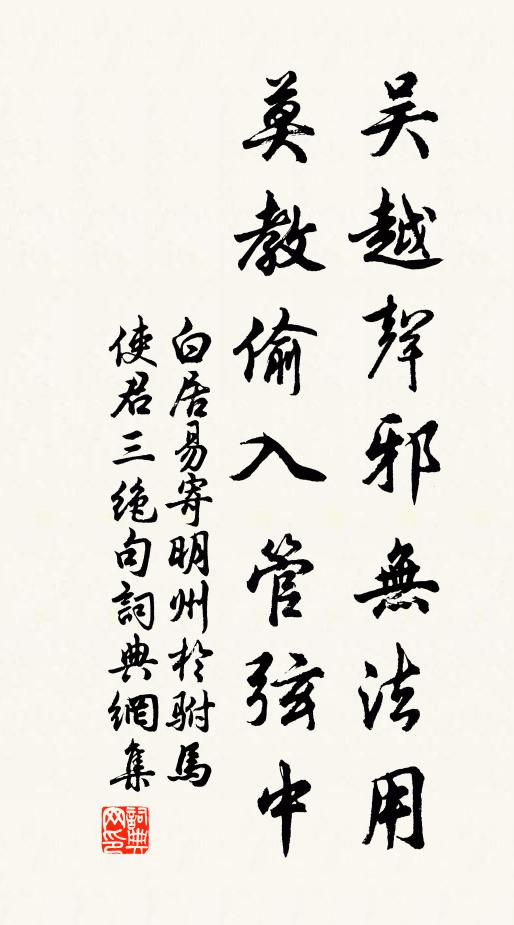 吴越聲邪無法用
莫教偷入管弦中
白居易寄明州於駙馬
使君三绝句詞典網集
詞典网印